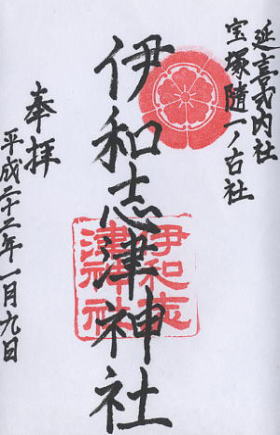 延喜式内社
宝塚随一ノ古社
伊和志津神社
伊和志
津神社
奉拝
平成二十二年一月九日